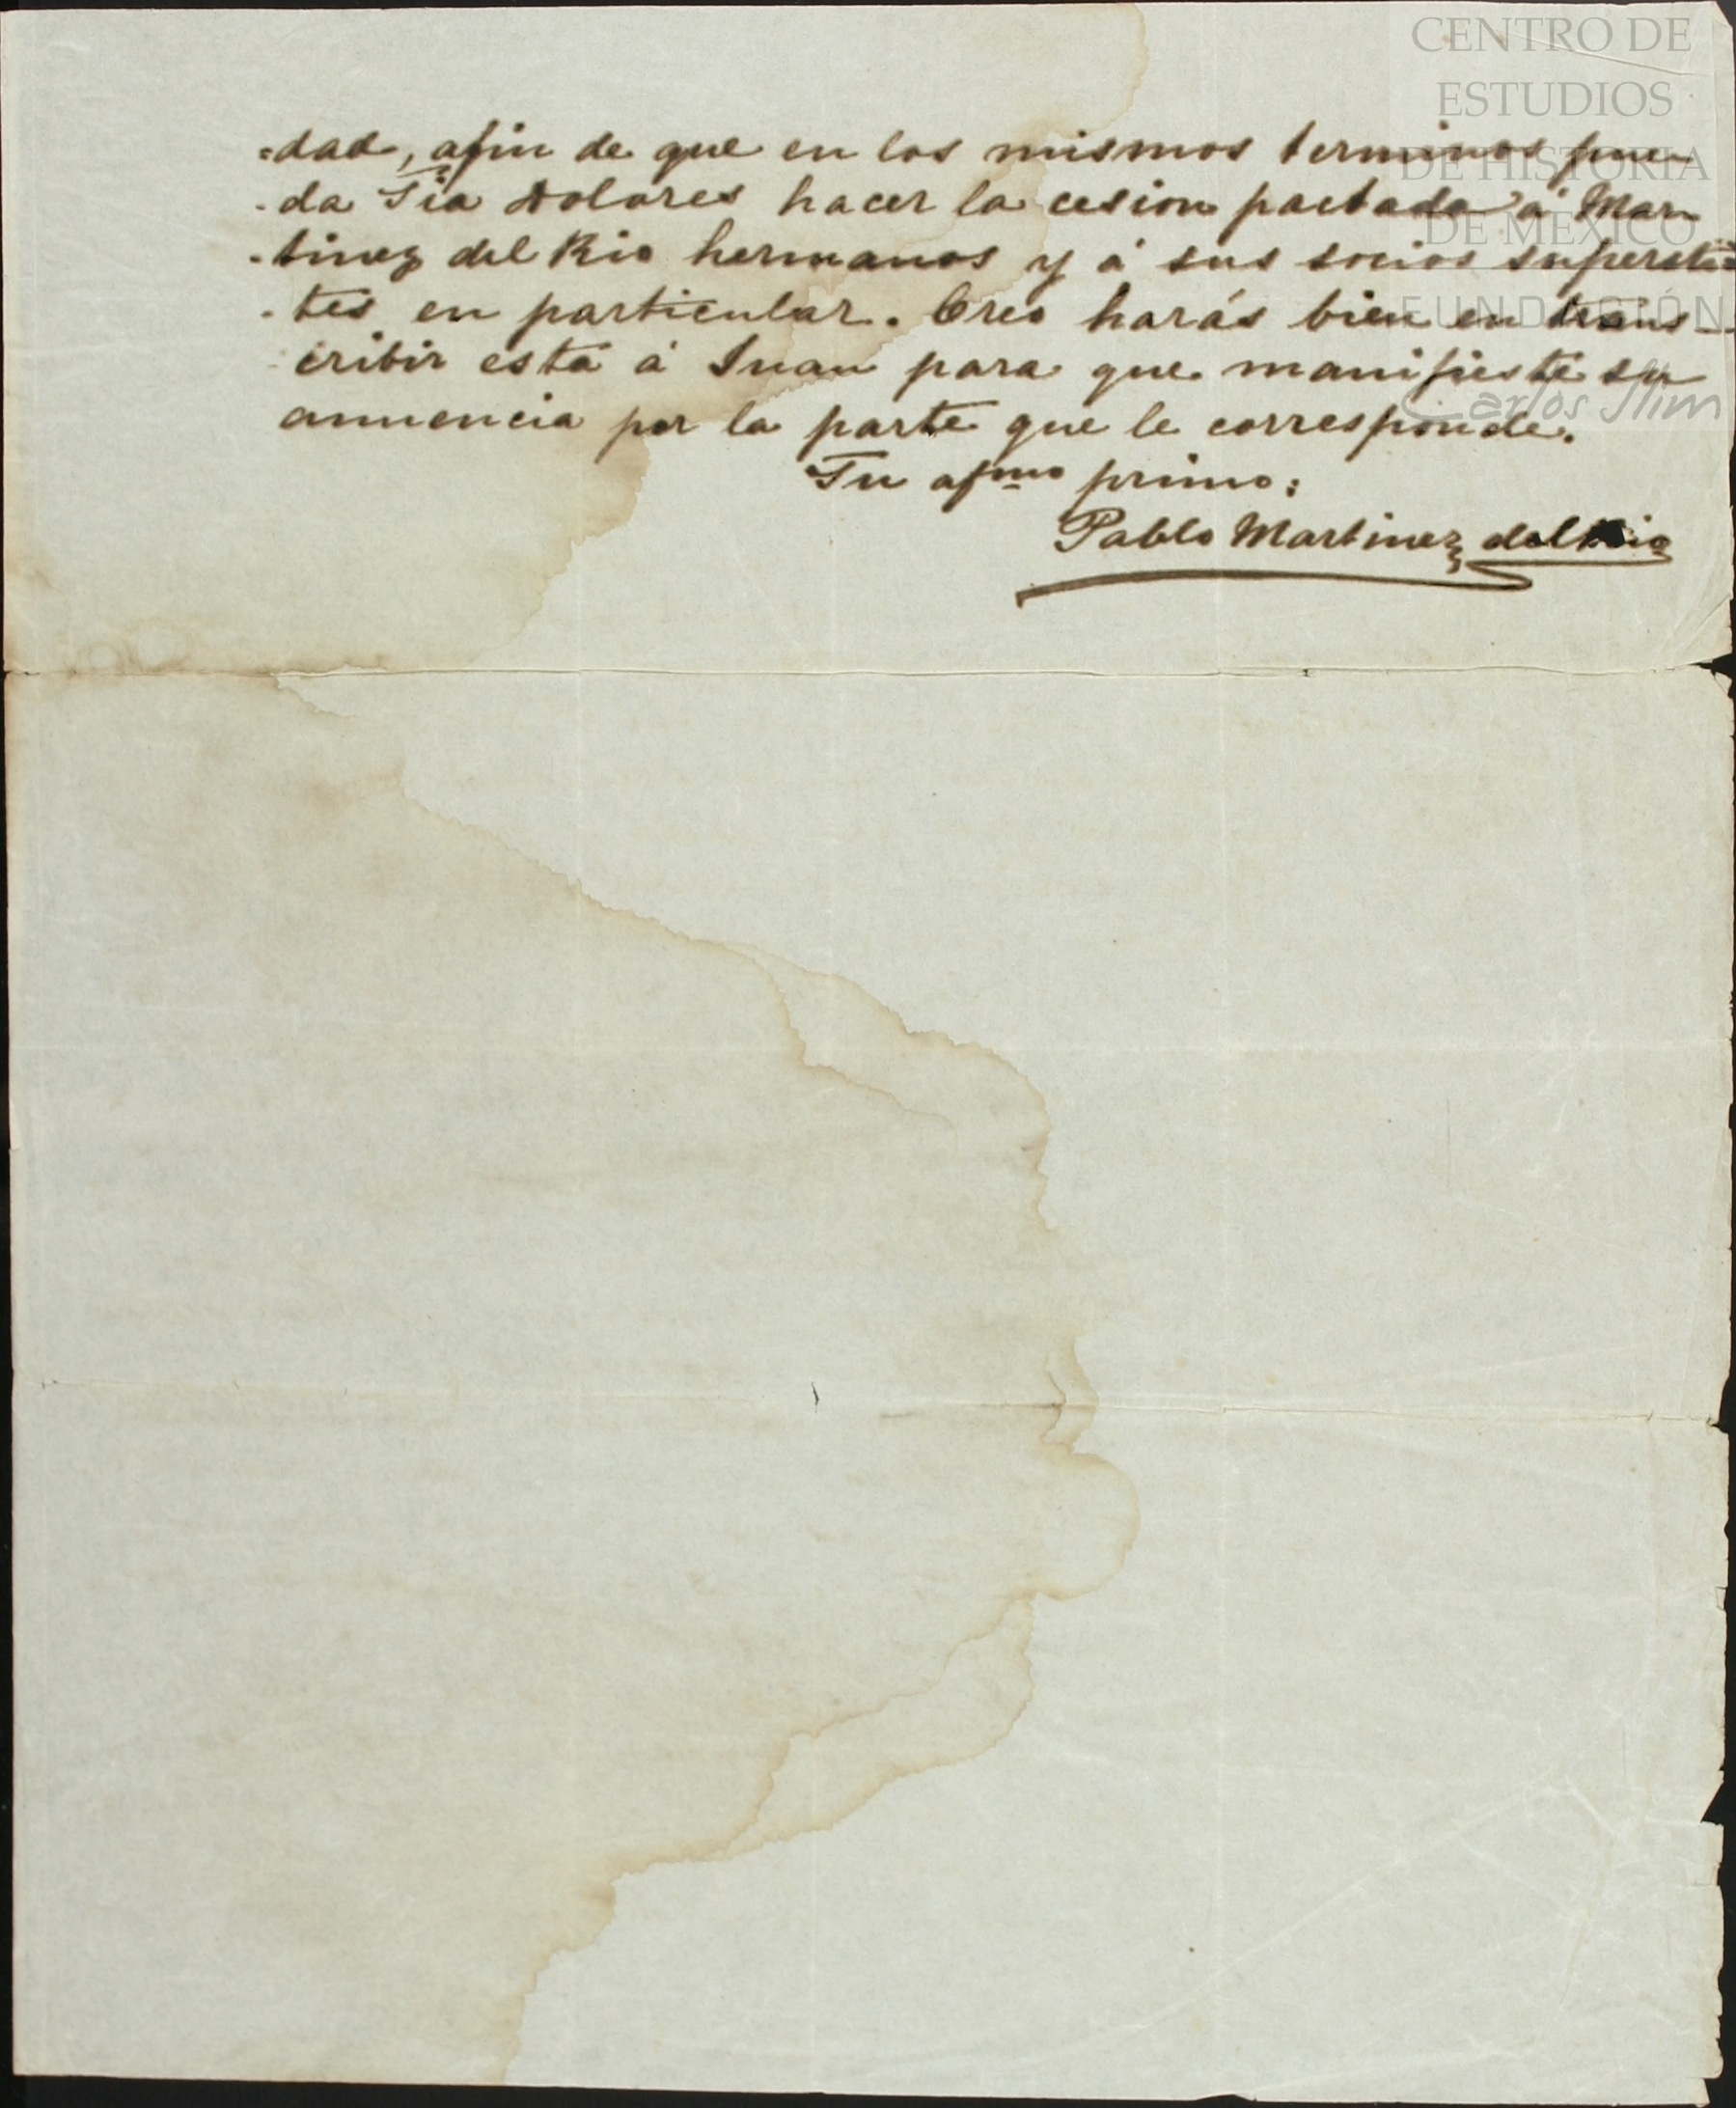 CENTRO DE
ESTUDIOS
DE HISTORIA
DE MÉXICO
FUNDACIÓN
Carlos Slim
=dad, afin de que en los mismos terminos pue-
-da Tia Dolores hacer la cesion pactada á Mar-
-tinez del Rio hermanos y á sus socios supersti-
-tes en particular. Creo harás bien en trans-
cribir esta á Juan para que manifieste su
anuencia por la parte que le corresponde.
Tu afmo primo:
Pablo Martinez del Rio